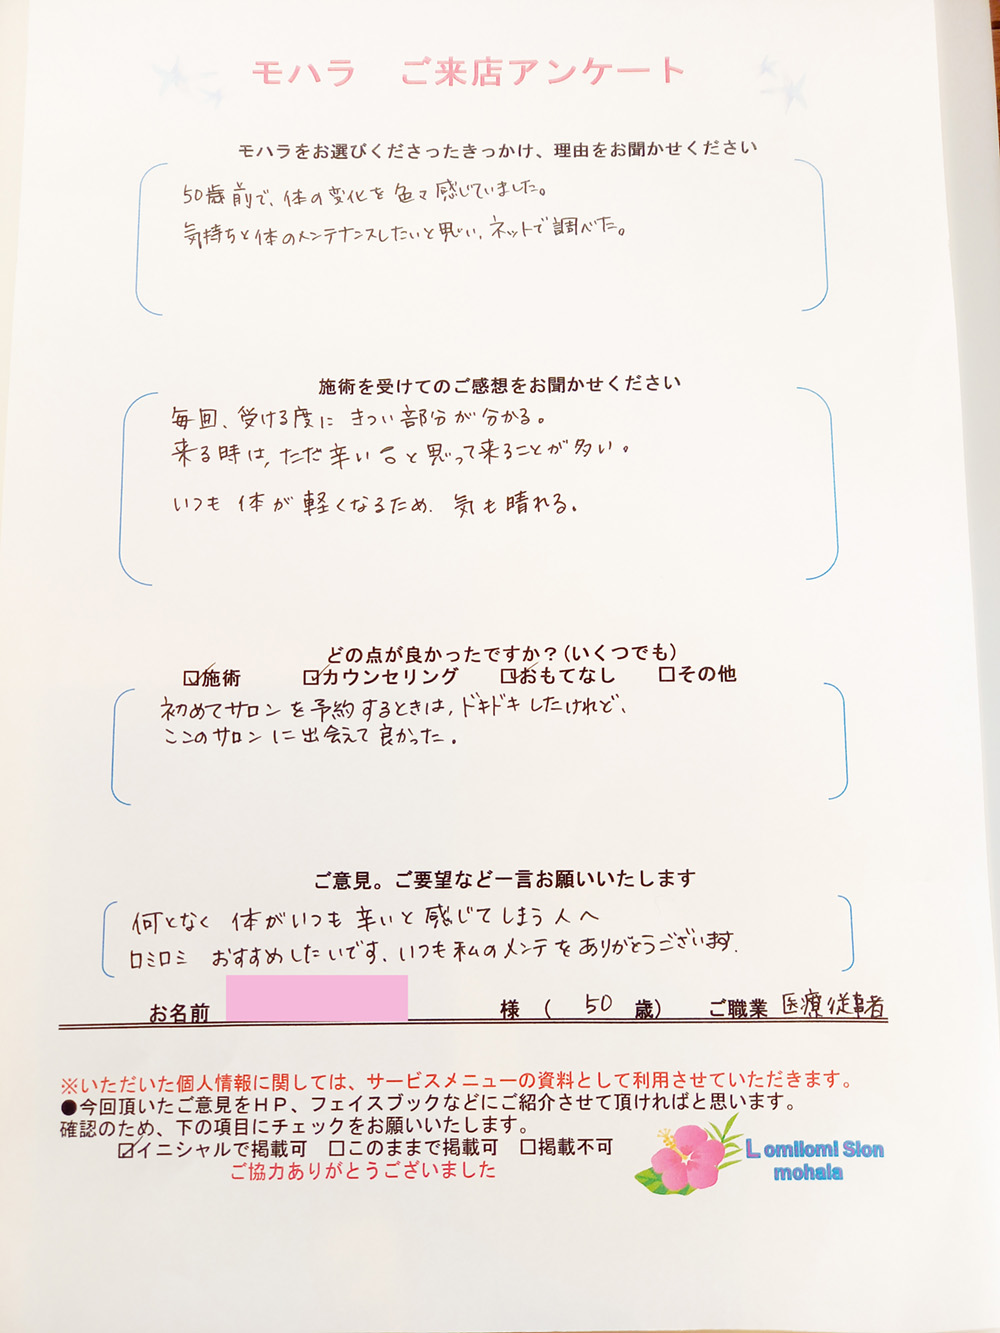 モハラ ご来店アンケート
モハラをお選びくださったきっかけ、理由をお聞かせください
50歳前で、体の変化を色々感じていました。
気持ちと体のメンテナンスしたいと思い、ネットで調べた。
施術を受けてのご感想をお聞かせください
毎回、受ける度に きつい部分が分かる。
来る時は、ただ辛い〜と思って来ることが多い。
いつも 体が軽くなるため、気も晴れる。
どの点が良かったですか？(いくつでも)
☑施術 ☑カウンセリング ☑おもてなし □その他
初めてサロンを予約するときは、ドキドキしたけれど、
ここのサロンに出会えて良かった。
ご意見。ご要望など一言お願いいたします
何となく 体がいつも辛いと感じてしまう人へ
ロミロミ おすすめしたいです、いつも私のメンテをありがとうございます.
お名前 様 ( 50 歳) ご職業 医療従事者
※いただいた個人情報に関しては、サービスメニューの資料として利用させていただきます。
●今回頂いたご意見をＨＰ、フェイスブックなどにご紹介させて頂ければと思います。
確認のため、下の項目にチェックをお願いいたします。
☑イニシャルで掲載可 □このままで掲載可 □掲載不可
ご協力ありがとうございました
Lomilomi Sion
mohala